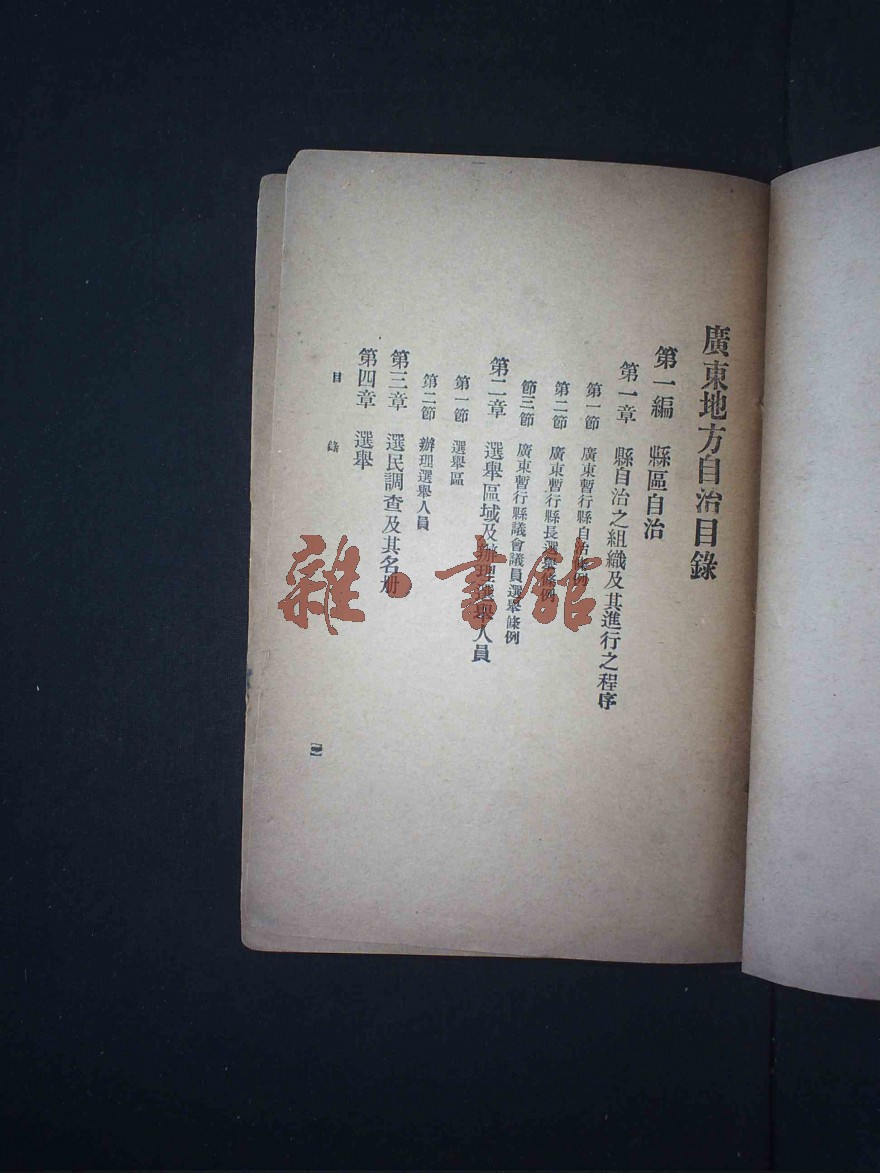 廣東地方自治目錄
第一編 縣區自治
第一章 縣自治之組織及其進行之程序
第一節 廣東暫行縣自治條例
第二節 廣東暫行縣長選舉條例
節三節 廣東暫行縣議會議員選舉條例
第二章 選舉區域及辦理選舉人員
第一節 選舉區
第二節 辦理選舉人員
第三章 選民調查及其名册
第四章 選舉
目錄
雜·書館